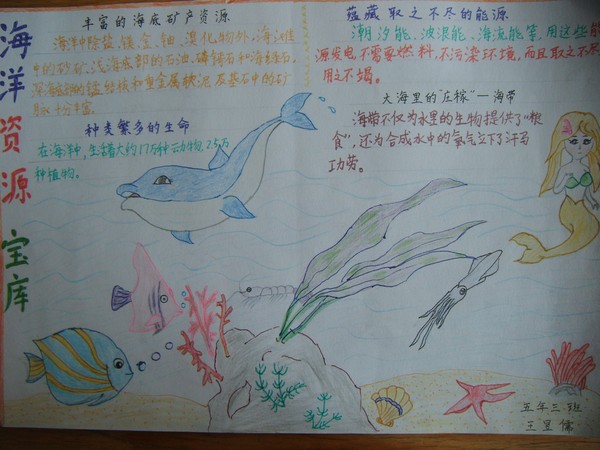 海洋资源宝库
丰富的海底矿产资源
海洋中除盐、镁、金、铀、溴化物外,海滩
中的砂矿、浅海底部的石油、磷钙石和海绿石,
深海底的锰结核和重金属软泥及基石中的矿
脉十分丰富。
种类繁多的生命
在海洋中,生活着大约17.5种动物,2.5万
种植物。
蕴藏取之不尽的能源
潮汐能、波浪能、海流能等,用这些能
源发电,不需要燃料,不污染环境,而且取之不尽
用之不竭。
大海里的“庄稼”——海带
海带不仅为水里的生物提供了“粮
食”,还为合成水中的氧气立下了汗马
功劳。
五年三班
王里儒